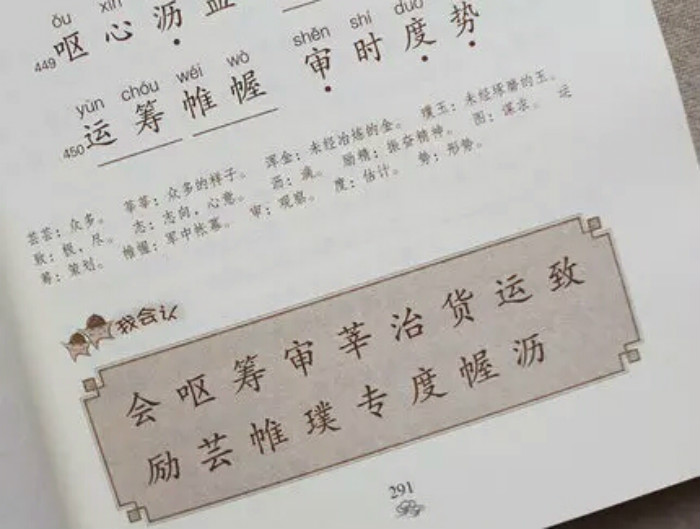 ǒu xīn
449 呕心沥血
yùn chóu wéi wò shěn shí duó shì
450 运筹帷幄 审时度势
芸芸：众多。 莘莘：众多的样子。 浑金：未经冶炼的金。 璞玉：未经琢磨的玉。
致：极，尽。 志：志向，心意。 沥：滴。 励精：振奋精神。 图：谋求。 运
筹：策划。 帷幄：军中帐幕。 审：观察。 度：估计。 势：形势。
我会认
会呕筹审莘治货运致
励芸帷璞专度幄沥
291